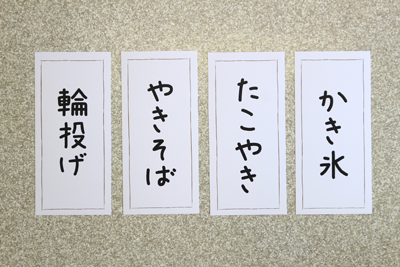 かき氷
たこやき
やきそば
輪投げ